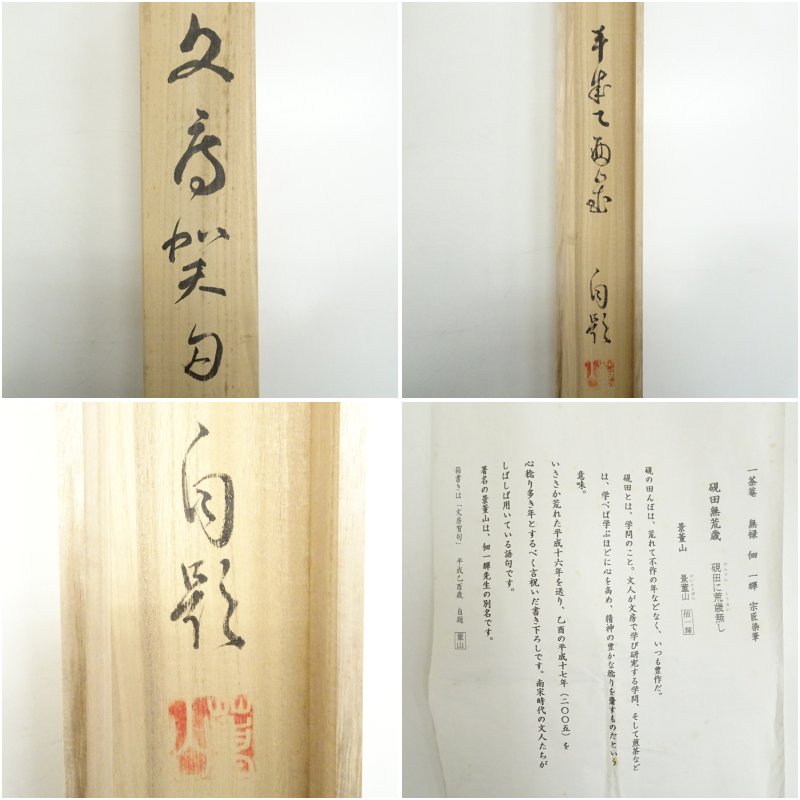 文房賀句
平成乙酉歳 自題
自題
一茶菴 無緑 佃 一輝 宗匠染筆
硯田無荒歳 硯田に荒歳無し
景董山 景董山 佃一輝
硯の田んぼは、荒れて不作の年などなく、いつも豊作だ。
硯田とは、学問のこと。文人が文房で学び研究する学問、そして煎茶など
は、学べば学ぶほどに心を高め、精神の豊かな稔りを齎すものだという
意味。
いささか荒れた平成十六年を送り、乙酉の平成十七年（二〇〇五）を
心稔り多き年とするべく言祝いだ書き下ろしです。南宋時代の文人たちが
しばしば用いている語句です。
署名の景董山は、佃一輝先生の別名です。
箱書きは「文房賀句」 平成乙酉歳 自題 董山